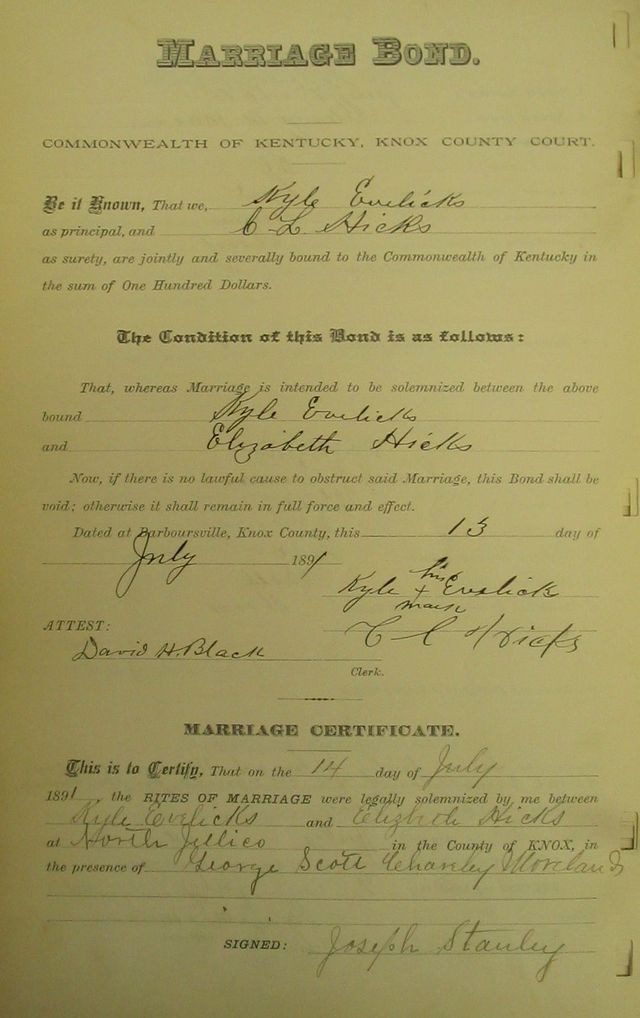 MARRIAGE BOND.
COMMONWEALTH OF KENTUCKY, KNOX COUNTY COURT.
Be it Known, That we, Kyle Evelicks
as principal, and C L Hicks
as surety, are jointly and severally bound to the Commonwealth of Kentucky in
the sum of One Hundred Dollars.
The Condition of this Bond is as follows:
That, whereas Marriage is intended to be solemnized between the above
bound Kyle Evelicks
and Elizabeth Hicks
Now, if there is no lawful cause to obstruct said Marriage, this Bond shall be
void; otherwise it shall remain in full force and effect.
Dated at Barboursville, Knox County, this 13 day of
July 1891
his
Kyle + Evelick
mark
ATTEST:
C L Hicks
David H. Black
Clerk.
MARRIAGE CERTIFICATE.
This is to Certify, That on the 14 day of July
1891, the RITES OF MARRIAGE were legally solemnized by me between
Kyle Evelicks and Elizbeth Hicks
at North Jellico in the County of KNOX, in
the presence of George Scott Charley Moreland
SIGNED: Joseph Stanley